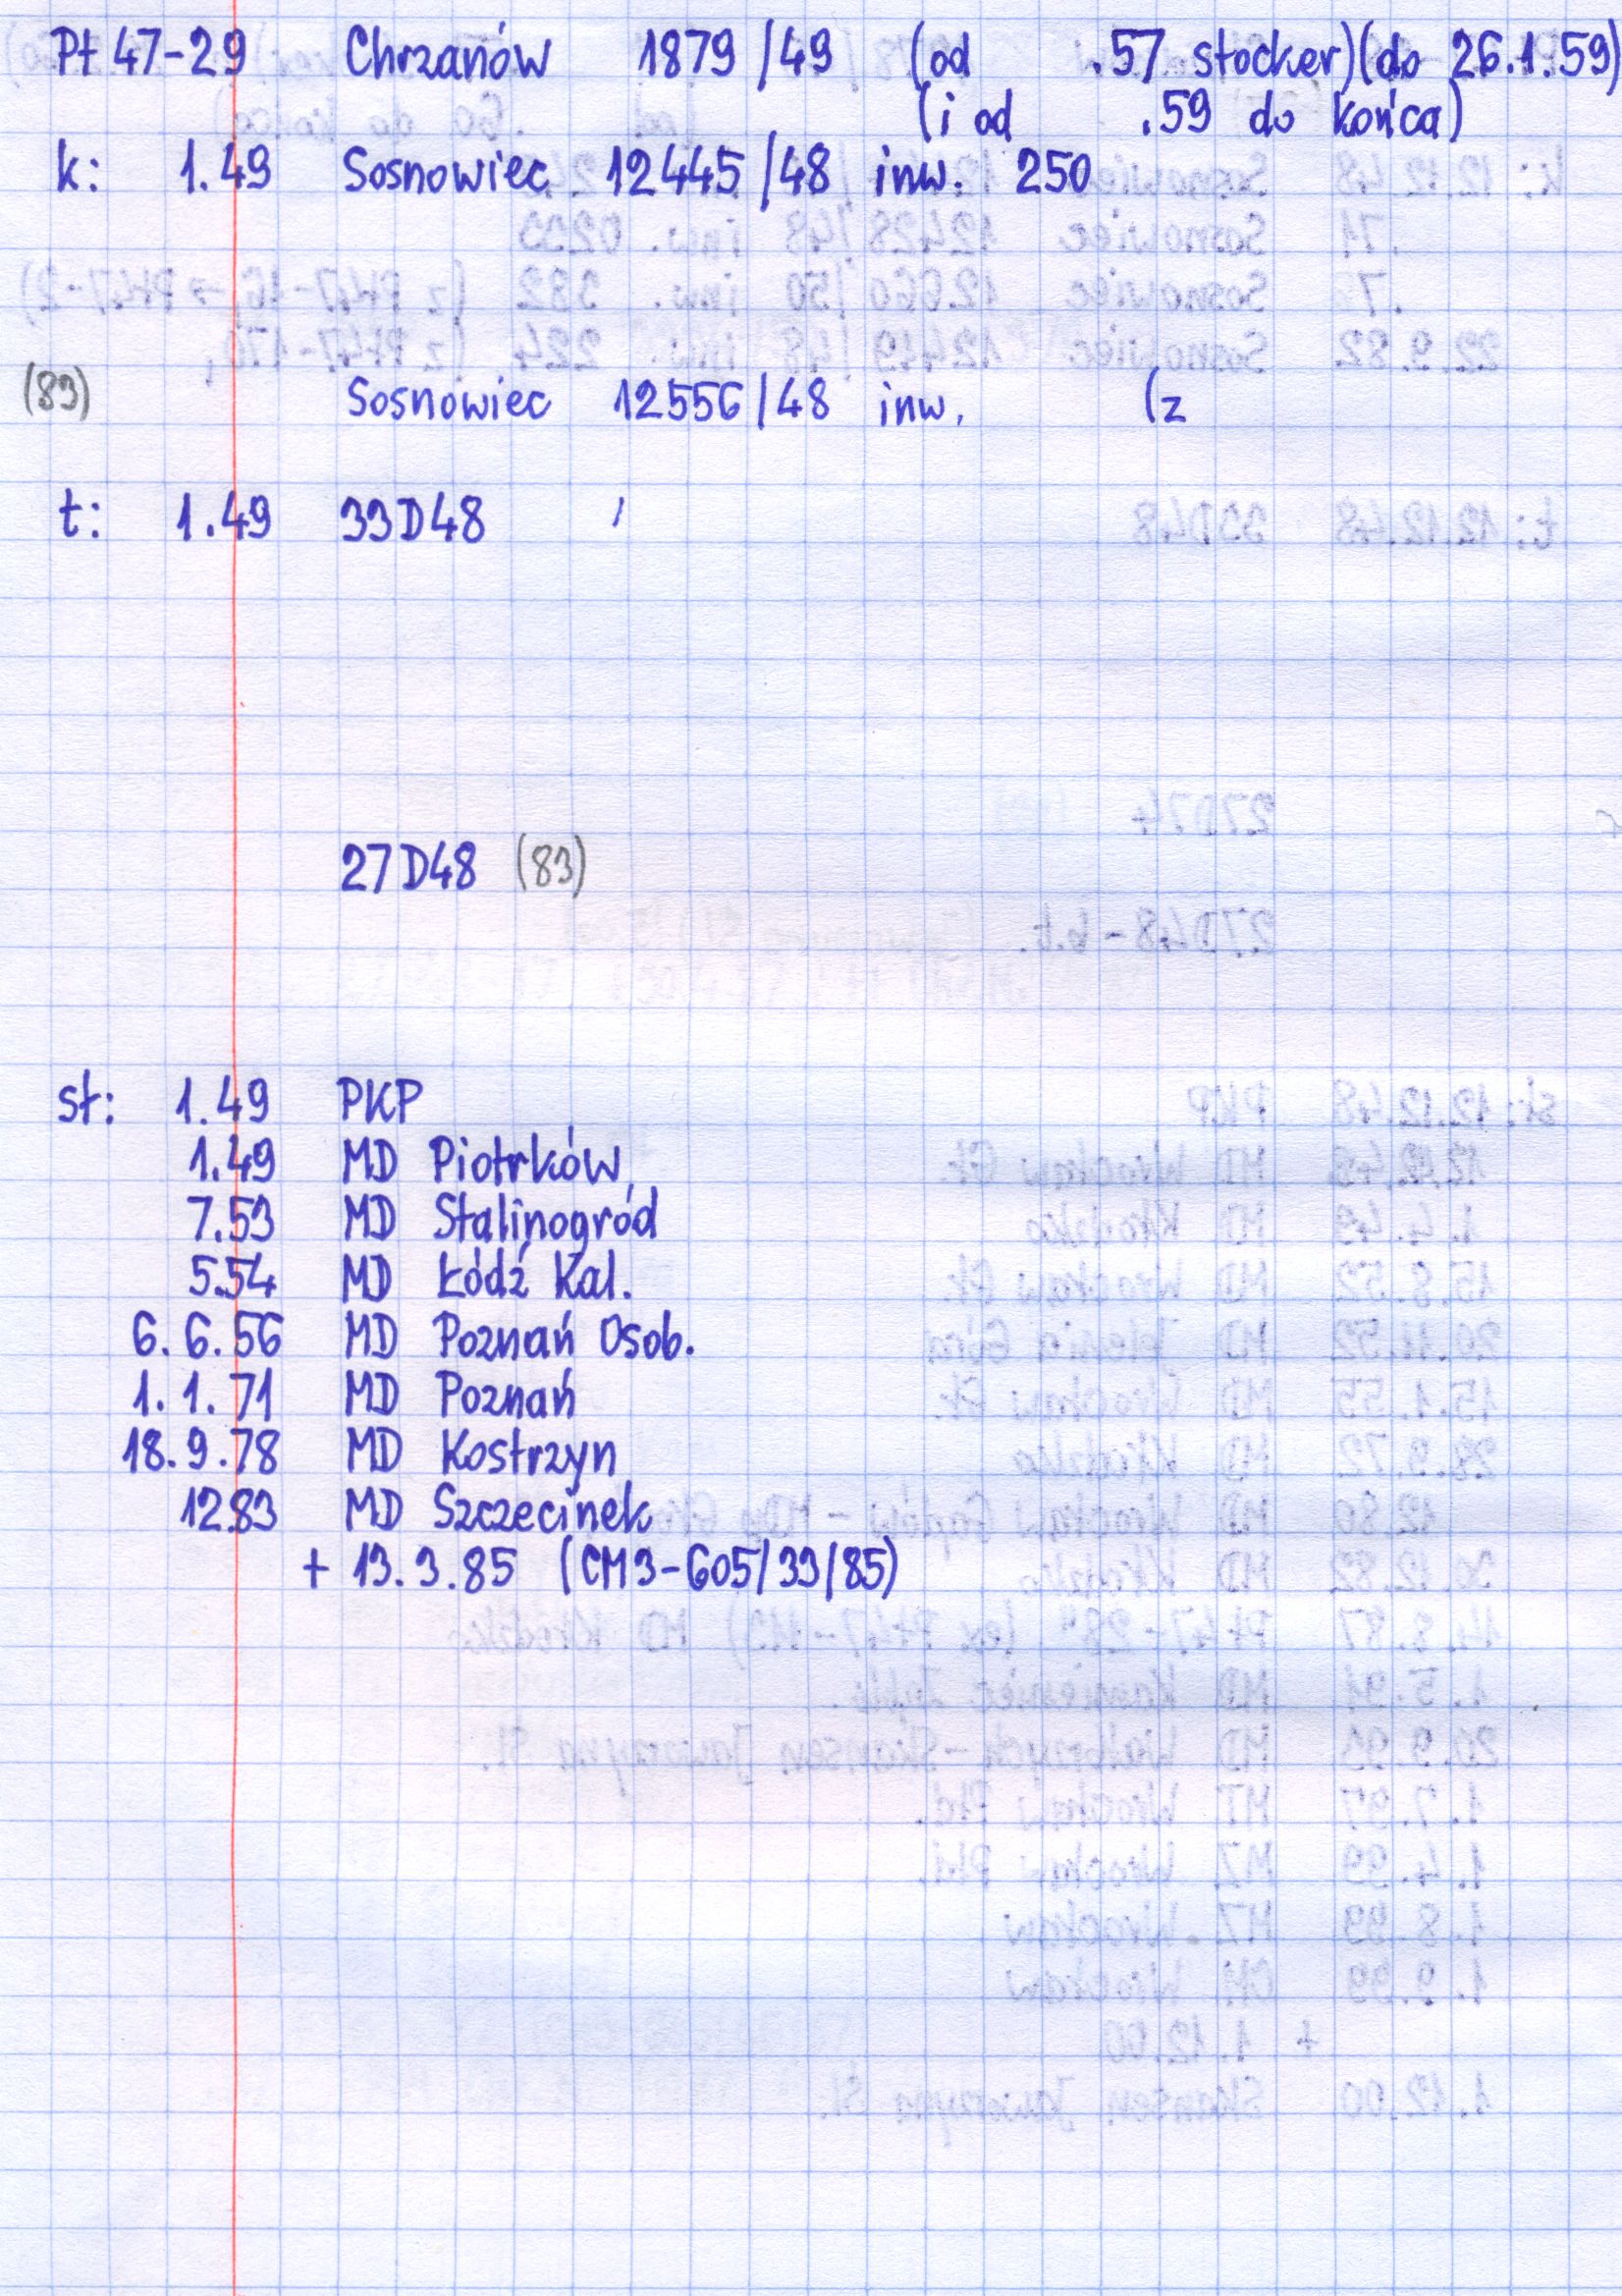 Pt 47-29 Chrzanów 1879/49 (od .57 stocker)(do 26.1.59)
(i od .59 do końca)
k: 1.49 Sosnowiec 12445/48 inw. 250
(83) Sosnowiec 12556/48 inw. (z
t: 1.49 33D48
27D48 (83)
st: 1.49 PKP
1.49 MD Piotrków
7.53 MD Stalinogród
5.54 MD Łódź Kal.
6.6.56 MD Poznań Osob.
1.1.71 MD Poznań
18.9.78 MD Kostrzyn
12.83 MD Szczecinek
+ 13.3.85 (CM3-605/33/85)